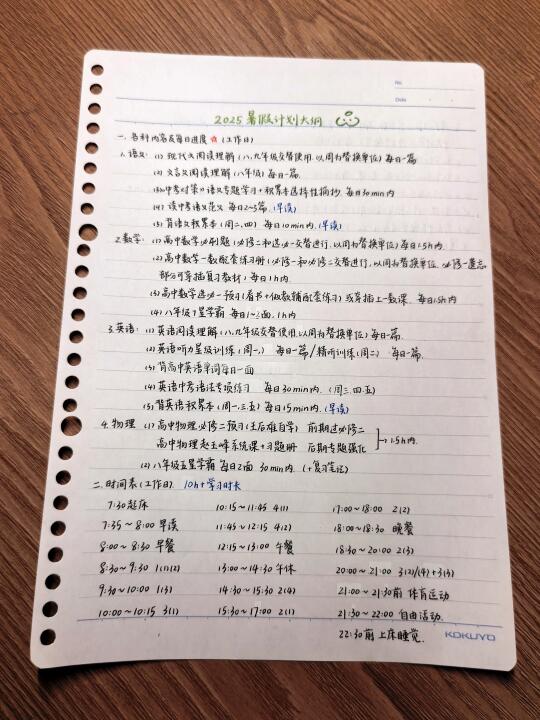 No.
Date
2025暑假计划大纲
一、各科内容及每日进度 (工作日)
1.语文: (1) 现代文阅读理解 (八、九年级交替使用,以周为替换单位) 每日一篇
(2) 文言文阅读理解 (八年级) 每日一篇
(3) 中考对策の语文专题学习+积累本选择性摘抄 每日30min内
(4) 读中考语文范文 每日2~3篇 (早读)
(5) 背语文积累本 (周二、四) 每日10min内 (早读)
2.数学: (1) 高中数学必刷题 (必修二和选必一交替进行,以周为替换单位) 每日1.5h内
(2) 高中数学一数配套练习册 (必修一和必修二交替进行,以周为替换单位,必修一遗忘
部分可穿插复习教材) 每日1h内
(3) 高中数学选必一预习 (看书+做教辅配套练习) 或穿插上一数课 每日1.5h内
(4) 八年级下星学霸 每日1~3面,1h内
3.英语: (1) 英语阅读理解 (八、九年级交替使用,以周为替换单位) 每日一篇
(2) 英语听力星级训练 (周一、) 每日一篇/精听训练 (周二) 每日一篇
(3) 背高中英语单词每日一面
(4) 英语中考语法专项练习 每日30min内 (周三、四、五)
(5) 背英语积累本 (周一、三、五) 每日15min内 (早读)
4.物理 (1) 高中物理必修二预习 (王后雄自学) 前期过必修二
高中物理赵玉峰系统课+习题册 后期专题强化 1.5h内
(2) 八年级五星学霸 每日2面 30min内 (+复习笔记)
二、时间表 (工作日) 10h+学习时长
7:30起床 10:15~11:45 4(1) 17:00~18:00 2(2)
7:35~8:00 早读 11:45~12:15 4(2) 18:00~18:30 晚餐
8:00~8:30 早餐 12:15~13:00 午餐 18:30~20:00 2(3)
8:30~9:30 1(1)(2) 13:00~14:30 午休 20:00~21:00 3(2)/(4)+3(3)
9:30~10:00 1(3) 14:30~15:30 2(4) 21:00~21:30前 体育运动
10:00~10:15 3(1) 15:30~17:00 2(1) 21:30~22:00 自由活动
22:30前 上床睡觉
KOKUYO